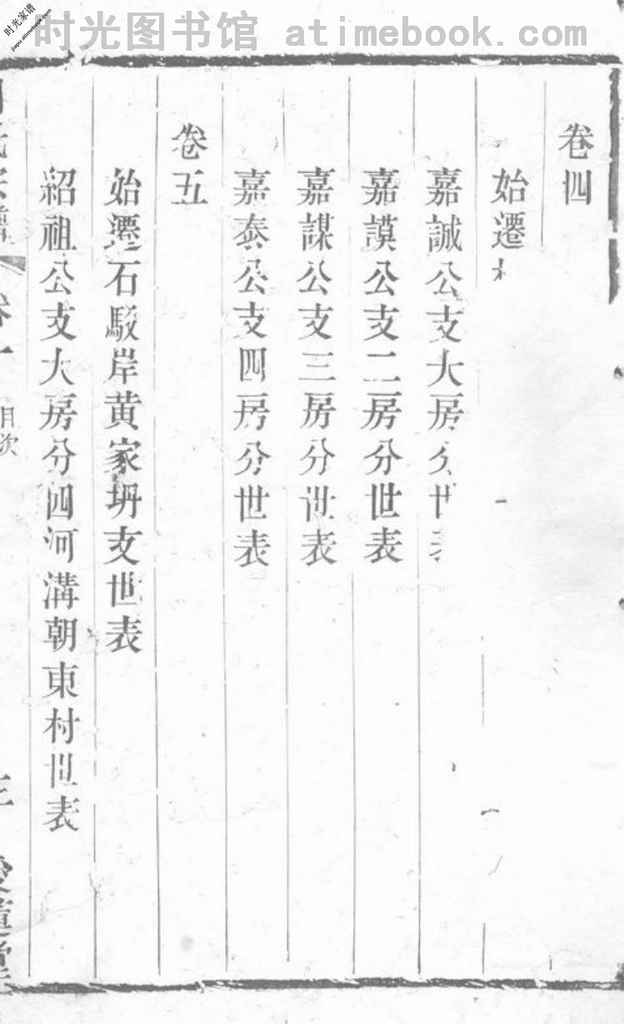 时光图书馆 atimebook.com
时光家谱
卷四
始遷
嘉誠公支大房分世表
嘉謨公支二房分世表
嘉謀公支三房分世表
嘉泰公支四房分世表
卷五
始遷石駁岸黃家坍支世表
紹祖公支大房分四河溝朝東村世表
卷一
目次